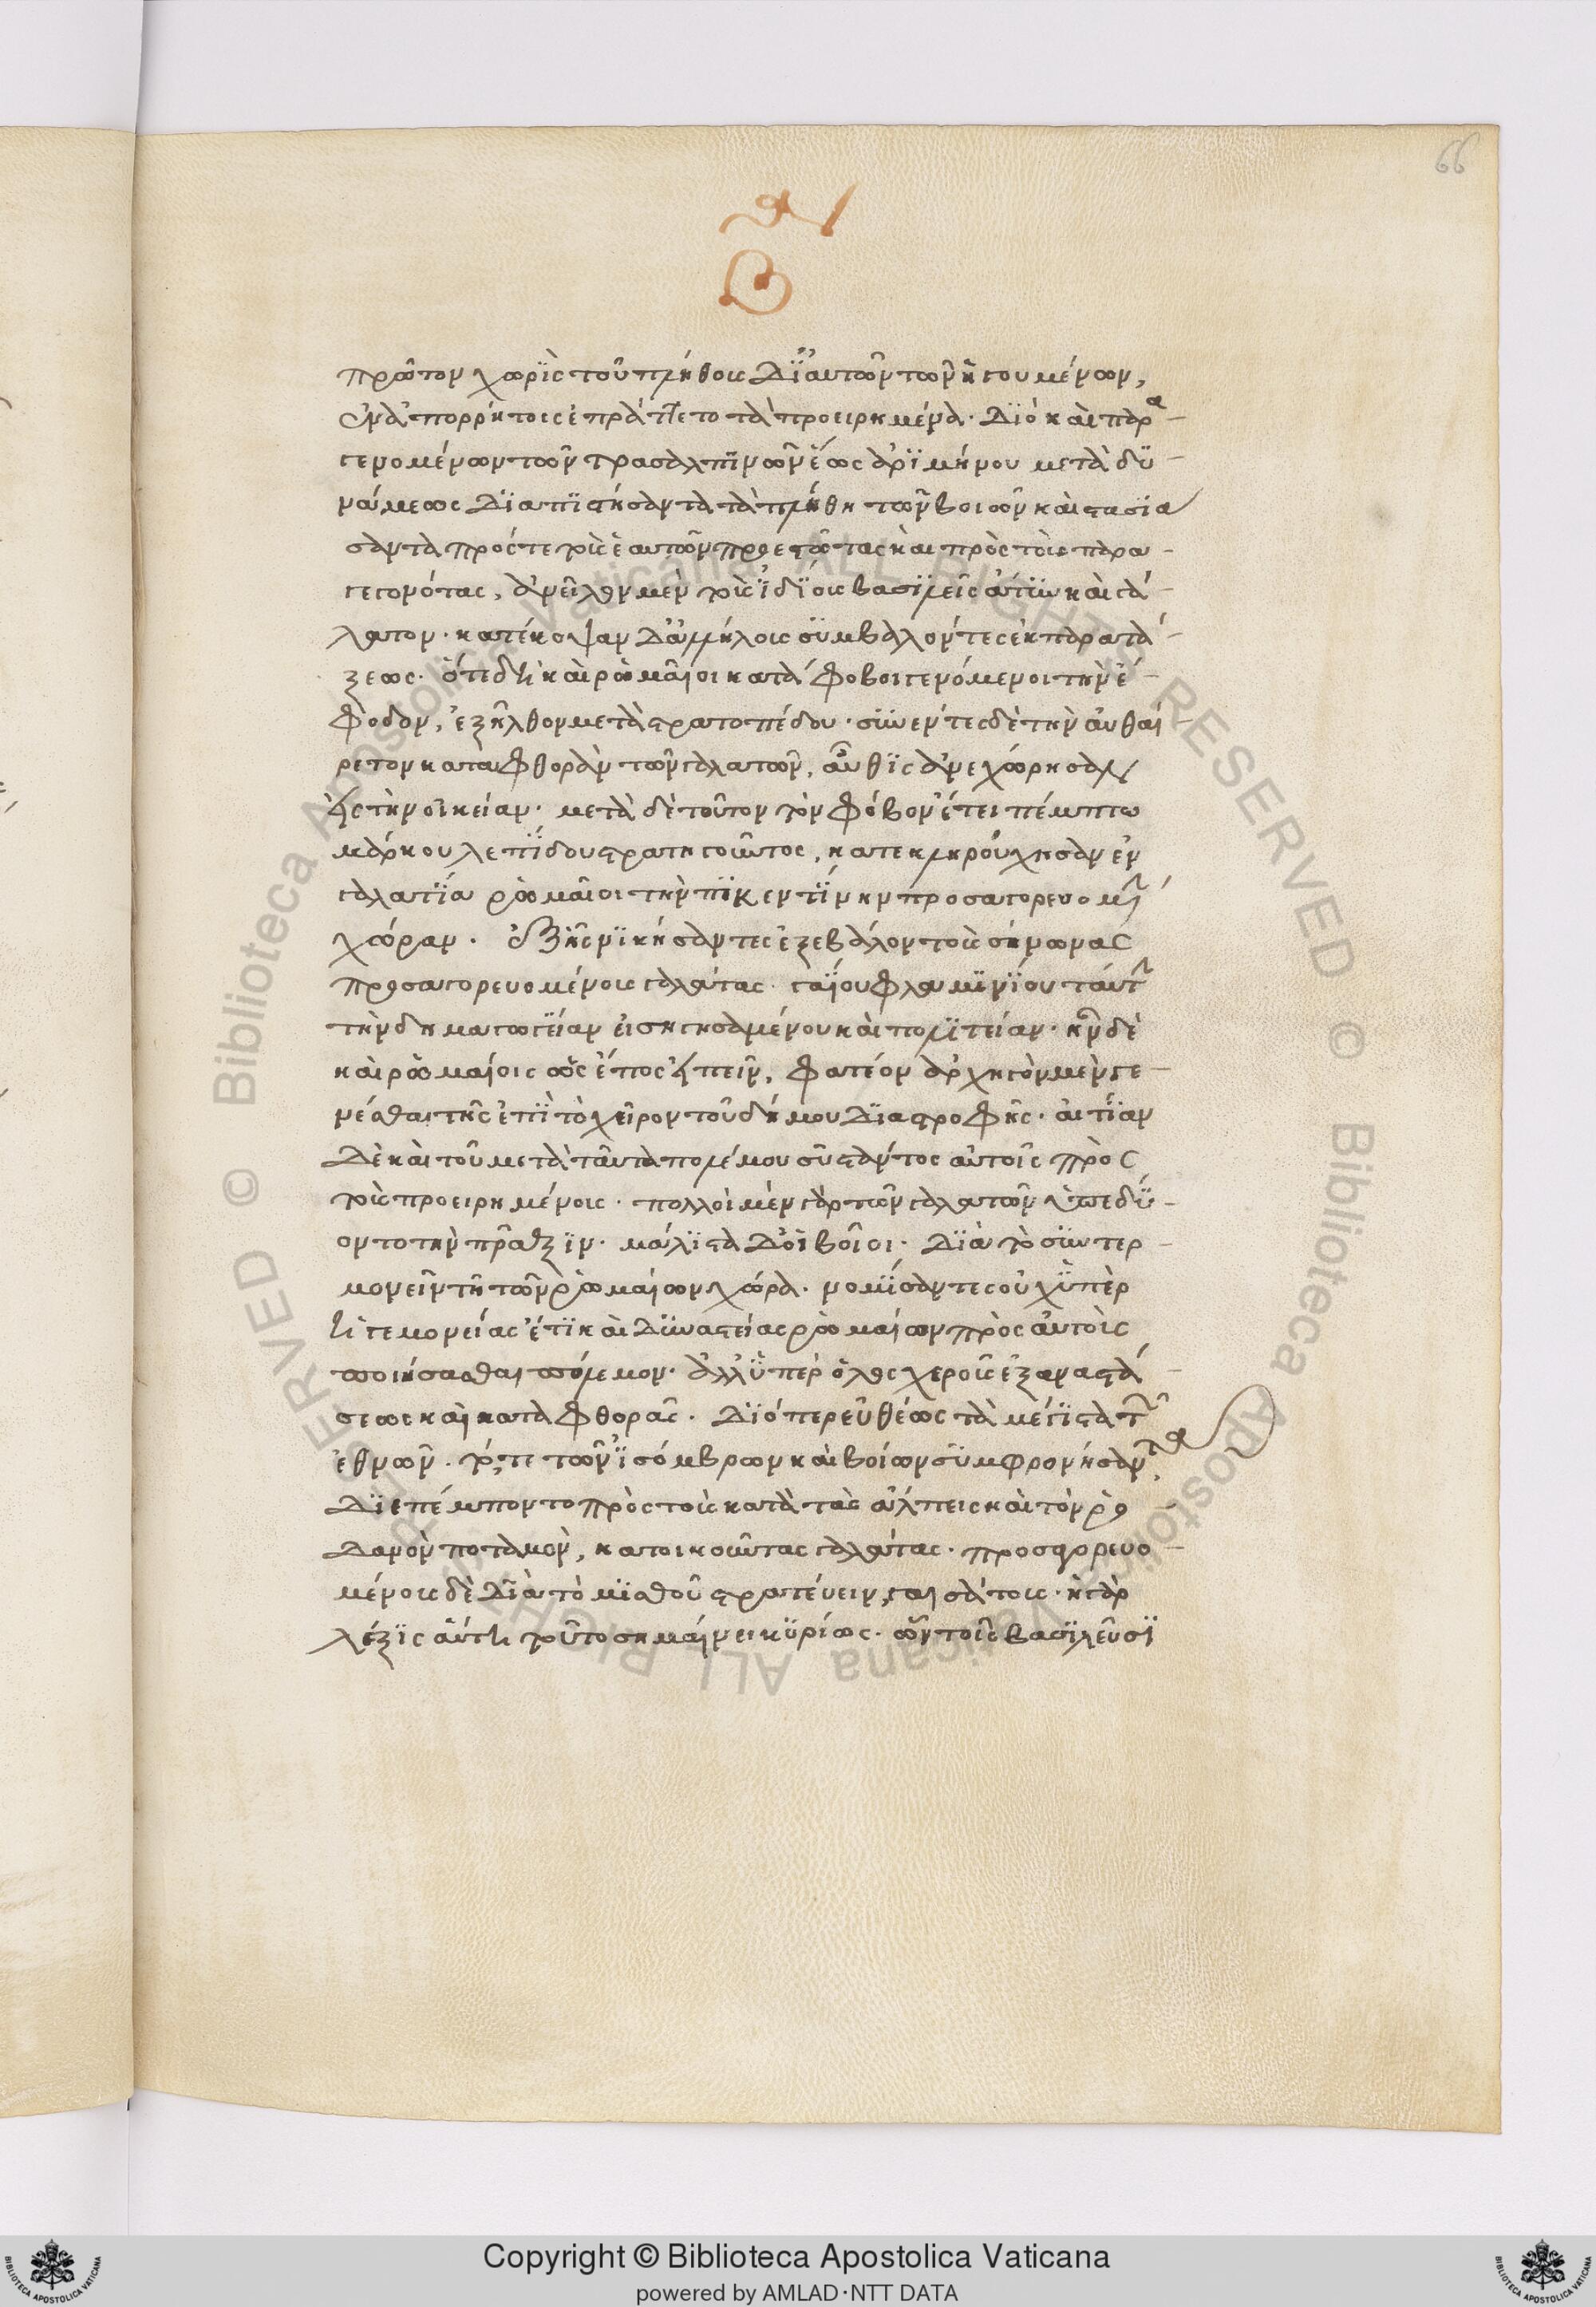 66
β
πρῶτον χωρὶς τοῦ πλήθους δι' αὐτῶν τῶν ἡγουμένων,
ἐν ἀπορρήτοις ἐπράττετο τὰ προειρημένα· διὸ καὶ παρα-
γενομένων τῶν τρασαλπίνων ἕως ἀριμήνου μετὰ δυ-
νάμεως διαπιστήσαντα τὰ πλήθη τῶν βοιῶν καὶ στασιά
σαντα πρός τε τοὺς ἑαυτῶν προεστῶτας καὶ πρὸς τοὺς παρα-
γεγονότας, ἀνεῖλον μὲν τοὺς ἰδίους βασιλεῖς ἄτιν καὶ γά-
λατον· κατέκοψαν δ' ἀλλήλους συμβαλόντες ἐκ παρατά-
ξεως· ὅτε δὴ καὶ ῥωμαῖοι κατάφοβοι γενόμενοι τὴν ἔ-
φοδον, ἐξῆλθον μετὰ στρατοπέδου· συνέντες δὲ τὴν αὐθαί-
ρετον καταφθορὰν τῶν γαλατῶν, αὖθις ἀνεχώρησαν
εἰς τὴν οἰκείαν· μετὰ δὲ τοῦτον τὸν φόβον ἔτει πέμπτω
μάρκου λεπίδου στρατηγοῦντος, κατεκληρούχησαν ἐν
γαλατία ῥωμαῖοι τὴν πικεντίνην προσαγορευομένην
χώραν· ἐξ ἧς νικήσαντες ἐξέβαλον τοὺς σήνωνας
προσαγορευομένους γαλάτας· γαΐου φλαμινίου ταύτην
τὴν δημαγωγίαν εἰσηγησαμένου καὶ πολιτείαν· ἣν δὲ
καὶ ῥωμαίοις ὡς ἔπος εἰπεῖν, φατέον ἀρχηγὸν μὲν γε-
νέσθαι τῆς ἐπὶ τὸ χεῖρον τοῦ δήμου διαστροφῆς· αἰτίαν
δὲ καὶ τοῦ μετὰ ταῦτα πολέμου συστάντος αὐτοῖς πρὸς
τοὺς προειρημένους· πολλοὶ μὲν γὰρ τῶν γαλατῶν ὑπεδύ-
οντο τὴν πρᾶξιν· μάλιστα δ' οἱ βοῖοι· διὰ τὸ συντερ-
μονεῖν τῆ τῶν ῥωμαίων χώρα· νομίσαντες οὐχ ὑπὲρ
ἡγεμονείας ἔτι καὶ δυναστείας ῥωμαίων πρὸς αὐτοὺς
ποιήσασθαι πόλεμον· ἀλλ' ὑπὲρ ὅλης χεροῦς ἐξαναστά-
σεως καὶ καταφθορᾶς· διόπερ εὐθέως τὰ μέγιστα τῶν
ἐθνῶν· τό, τε τῶν ἰσόμβρων καὶ βοίων συμφρονήσαντα
διεπέμποντο πρὸς τοὺς κατὰ τὰς ἄλπεις καὶ τὸν ῥο-
δανὸν ποταμὸν, κατοικοῦντας γαλάτας· προσαγορευο-
μένους δὲ διὰ τὸ μισθοῦ στρατεύειν, γαισάτους· ἡ γὰρ
λέξις αὕτη τοῦτο σημαίνει κυρίως· ὧν τοῖς βασιλεῦσι
Copyright © Biblioteca Apostolica Vaticana
powered by AMLAD·NTT DATA